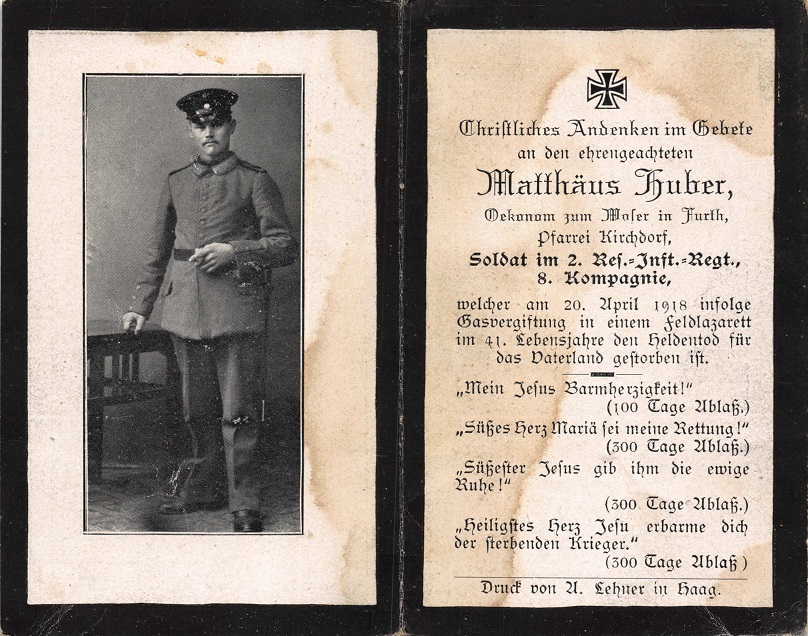 Christliches Andenken im Gebete
an den ehrengeachteten
Matthäus Huber,
Oekonom zum Moser in Furth,
Pfarrei Kirchdorf,
Soldat im 2. Res.-Inft.-Regt.,
8. Kompagnie,
welcher am 20. April 1918 infolge
Gasvergiftung in einem Feldlazarett
im 41. Lebensjahre den Heldentod für
das Vaterland gestorben ist.
„Mein Jesus Barmherzigkeit!“
(100 Tage Ablaß.)
„Süßes Herz Mariä sei meine Rettung!“
(300 Tage Ablaß.)
„Süßester Jesus gib ihm die ewige
Ruhe!“
(300 Tage Ablaß.)
„Heiligstes Herz Jesu erbarme dich
der sterbenden Krieger.“
(300 Tage Ablaß)
Druck von A. Lehner in Haag.